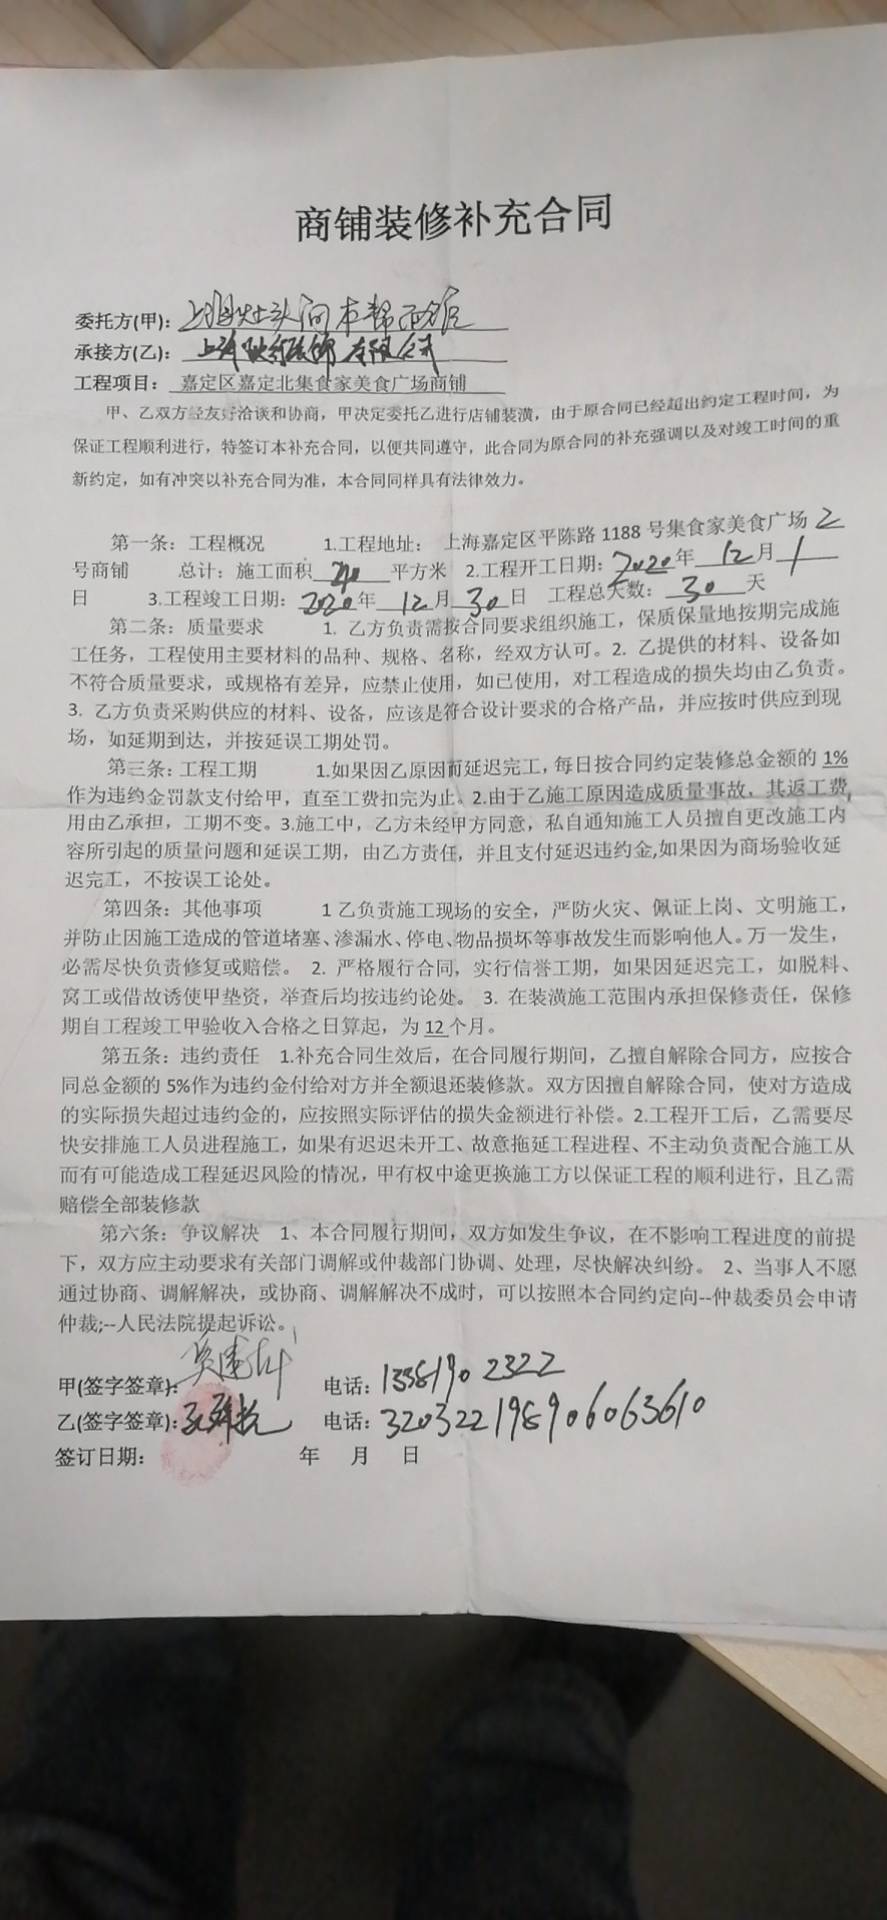 商铺装修补充合同
委托方(甲):
承接方(乙): 上海 有限公司
工程项目: 嘉定区嘉定北集食家美食广场商铺
甲、乙双方经友好洽谈和协商，甲决定委托乙进行店铺装潢，由于原合同已经超出约定工程时间，为
保证工程顺利进行，特签订本补充合同，以便共同遵守，此合同为原合同的补充强调以及对竣工时间的重
新约定，如有冲突以补充合同为准，本合同同样具有法律效力。
第一条：工程概况 1.工程地址： 上海嘉定区平陈路 1188 号集食家美食广场 2
号商铺 总计：施工面积 平方米 2.工程开工日期：2020年 12月 1
日 3.工程竣工日期：2020年 12月 30日 工程总天数：30 天
第二条：质量要求 1. 乙方负责需按合同要求组织施工，保质保量地按期完成施
工任务，工程使用主要材料的品种、规格、名称，经双方认可。2. 乙提供的材料、设备如
不符合质量要求，或规格有差异，应禁止使用，如已使用，对工程造成的损失均由乙负责。
3. 乙方负责采购供应的材料、设备，应该是符合设计要求的合格产品，并应按时供应到现
场，如延期到达，并按延误工期处罚。
第三条：工程工期 1.如果因乙原因而延迟完工，每日按合同约定装修总金额的 1%
作为违约金罚款支付给甲，直至工费扣完为止。2.由于乙施工原因造成质量事故，其返工费
用由乙承担，工期不变。3.施工中，乙方未经甲方同意，私自通知施工人员擅自更改施工内
容所引起的质量问题和延误工期，由乙方责任，并且支付延迟违约金,如果因为商场验收延
迟完工，不按误工论处。
第四条：其他事项 1 乙负责施工现场的安全，严防火灾、佩证上岗、文明施工，
并防止因施工造成的管道堵塞、渗漏水、停电、物品损坏等事故发生而影响他人。万一发生，
必需尽快负责修复或赔偿。 2. 严格履行合同，实行信誉工期，如果因延迟完工，如脱料、
窝工或借故诱使甲垫资，举查后均按违约论处。 3. 在装潢施工范围内承担保修责任，保修
期自工程竣工甲验收入合格之日算起，为 12 个月。
第五条：违约责任 1.补充合同生效后，在合同履行期间，乙擅自解除合同方，应按合
同总金额的 5%作为违约金付给对方并全额退还装修款。双方因擅自解除合同，使对方造成
的实际损失超过违约金的，应按照实际评估的损失金额进行补偿。2.工程开工后，乙需要尽
快安排施工人员进程施工，如果有迟迟未开工、故意拖延工程进程、不主动负责配合施工从
而有可能造成工程延迟风险的情况，甲有权中途更换施工方以保证工程的顺利进行，且乙需
赔偿全部装修款
第六条：争议解决 1、本合同履行期间，双方如发生争议，在不影响工程进度的前提
下，双方应主动要求有关部门调解或仲裁部门协调、处理，尽快解决纠纷。 2、当事人不愿
通过协商、调解解决，或协商、调解解决不成时，可以按照本合同约定向--仲裁委员会申请
仲裁;--人民法院提起诉讼。
甲(签字签章): 电话: 13381902322
乙(签字签章): 电话: 320322198906063610
签订日期： 年 月 日